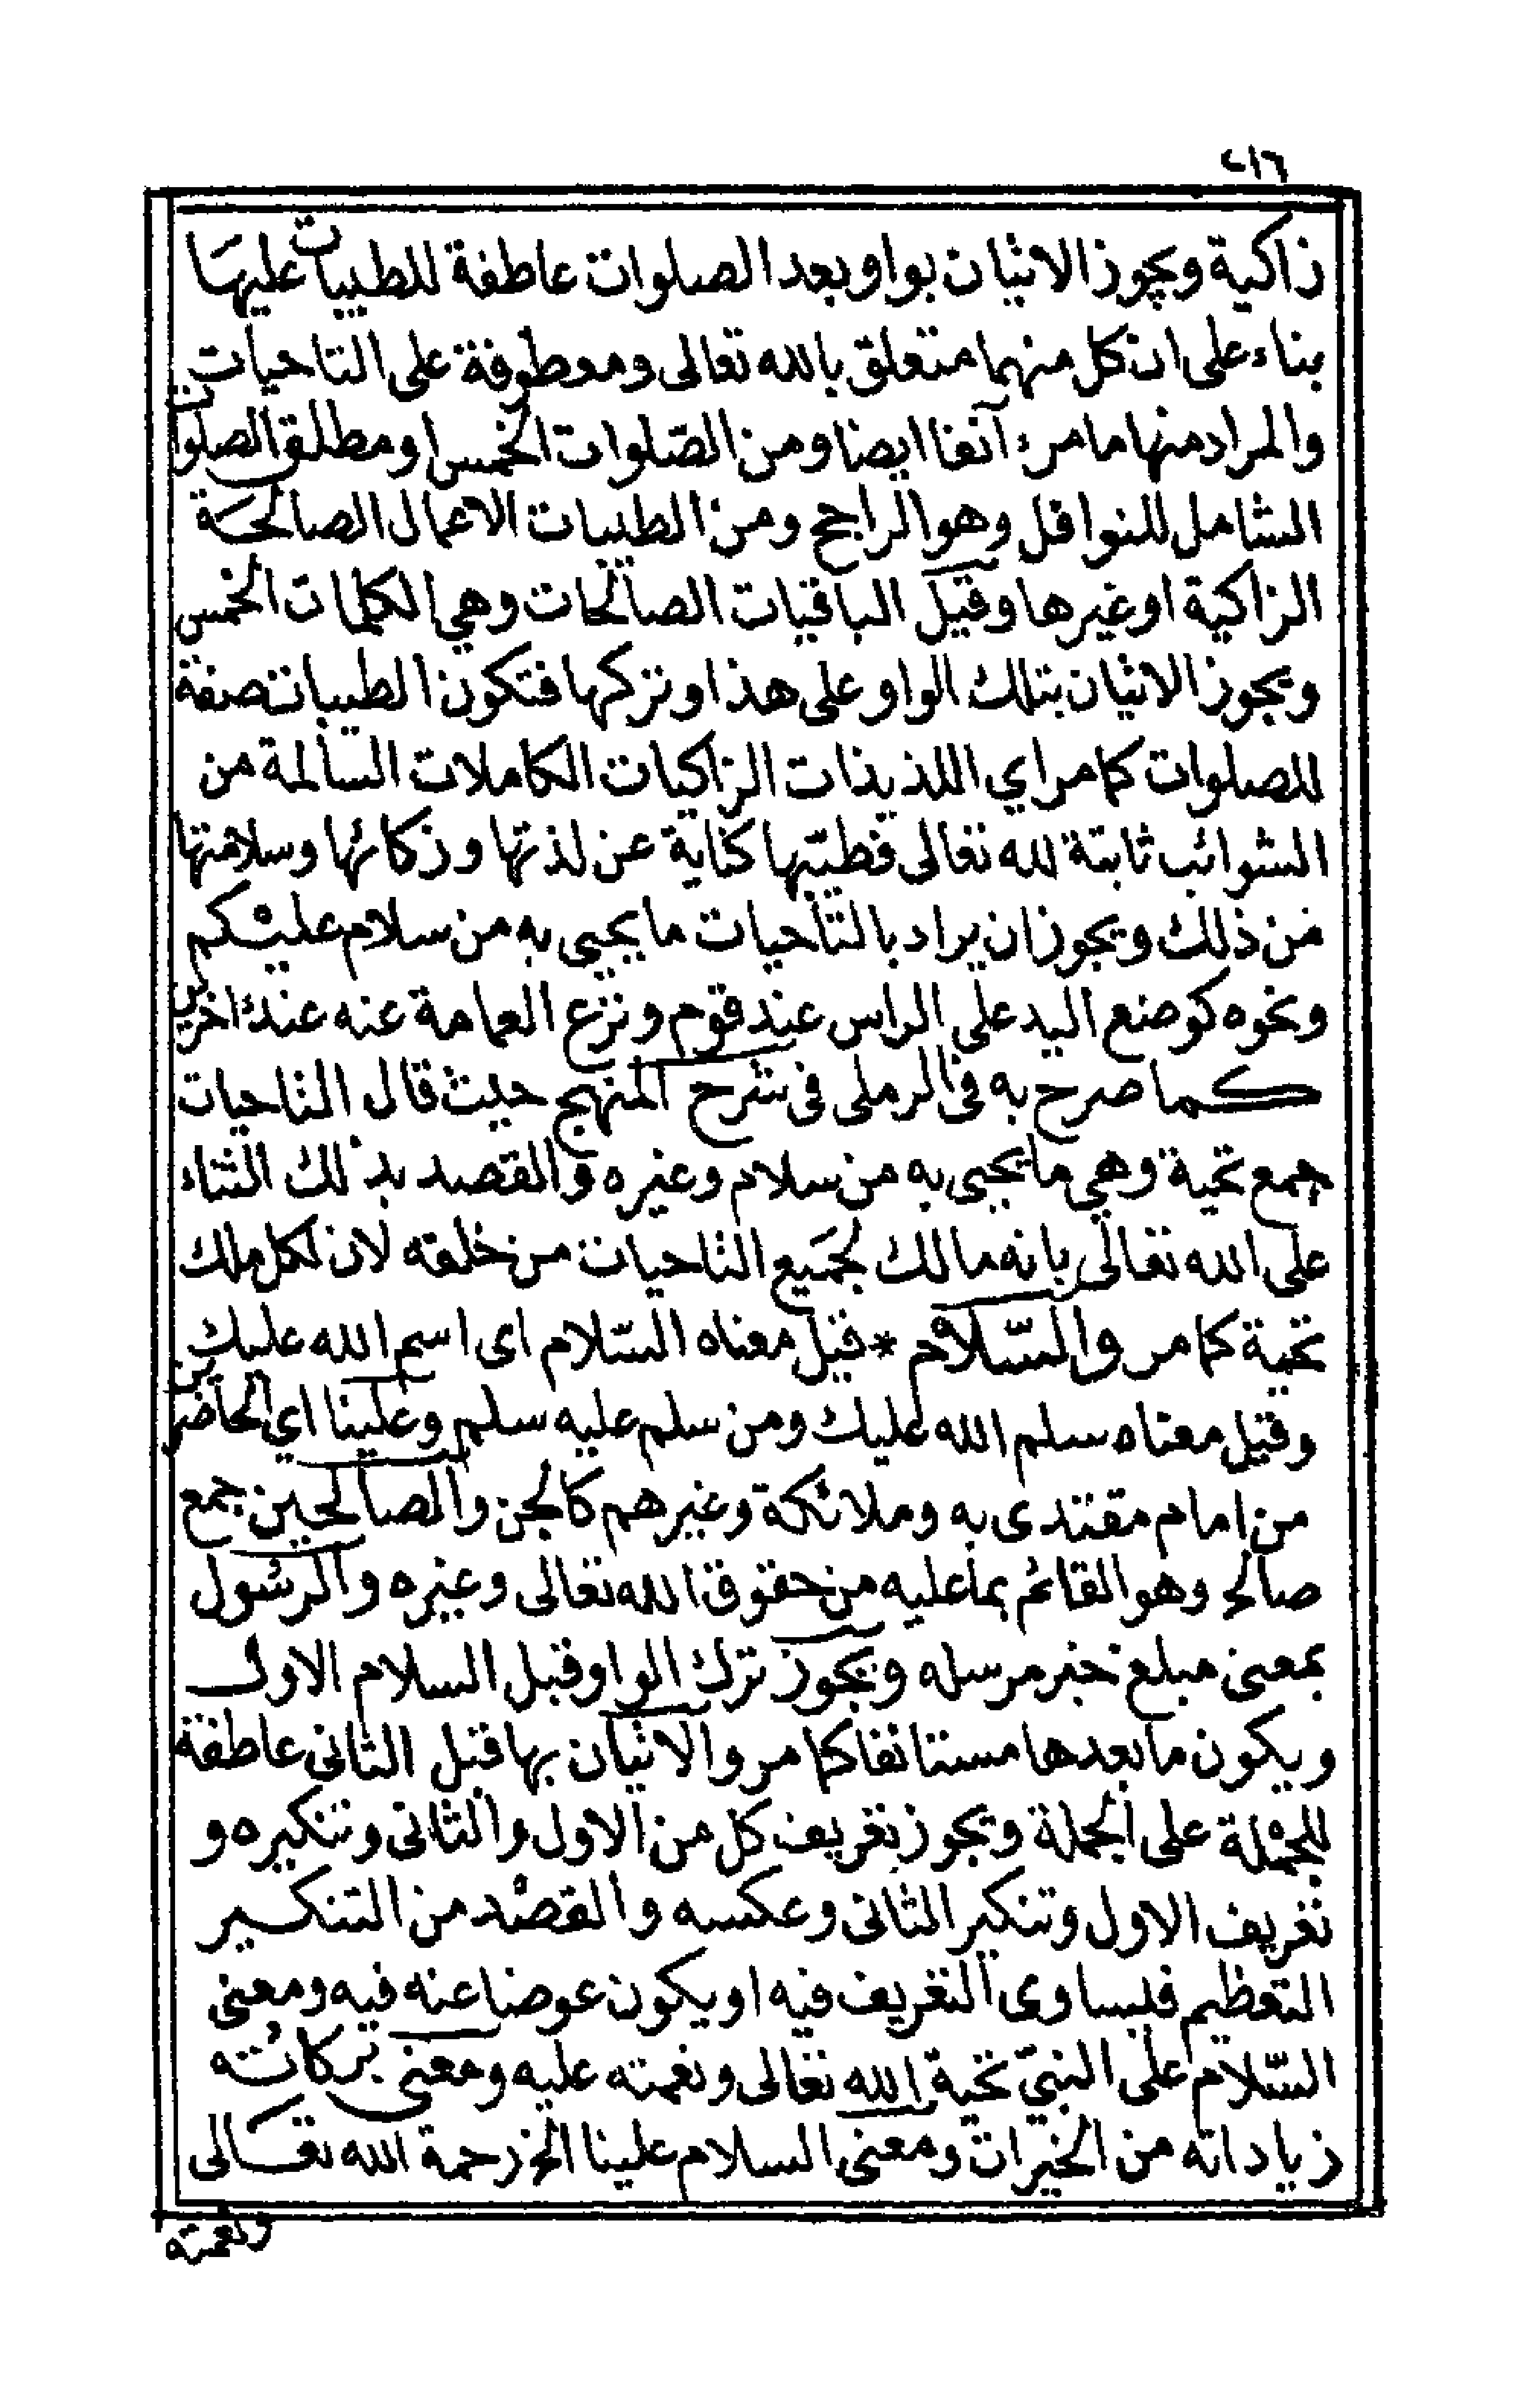 ٢١٦
زاكية ويجوز الاتيان بواو بعد الصلوات عاطفة للطيبات عليها
بناء على ان كل منهما متعلق بالله تعالى ومعطوفة على التاحيات
والمراد منها ما مر آنفا ايضا ومن الصّلوات الخمس او مطلق الصلوات
الشامل للنوافل وهو الراجح ومن الطيبات الاعمال الصالحة
الزاكية او غيرها وقيل الباقيات الصالحات وهي الكلمات الخمس
ويجوز الاتيان بتلك الواو على هذا وتركها فتكون الطيبات صفة
للصلوات كما مر اي اللذيذات الزاكيات الكاملات السالمة من
الشوائب ثابتة لله تعالى فطيّبها كناية عن لذتها وزكائها وسلامتها
من ذلك ويجوز ان يراد بالتاحيات ما يحيى به من سلام عليكم
ونحوه كوضع اليد على الراس عند قوم ونزع العمامة عنه عند اخرين
كما صرح به في الرملى فى شرح المنهج حيث قال التاحيات
جمع تحية وهي ما يحيى به من سلام وغيره والقصد بذلك الثناء
على الله تعالى بانه مالك لجميع التاحيات من خلقه لان لكل ملك
تحية كما مر والسّلام * قيل معناه السّلام اى اسم الله عليك
وقيل معناه سلم الله عليك ومن سلم عليه سلم وعلينا اي الحاضرين
من امام مقتدى به وملائكة وغيرهم كالجن والصالحين جمع
صالح وهو القائم بما عليه من حقوق الله تعالى وغيره والرسُول
بمعنى مبلغ خبر مرسله ويجوز ترك الواو قبل السلام الاول
ويكون ما بعدها مستانفا كما مر والاتيان بها قبل الثانى عاطفة
للجمْلة على الجملة ويجوز تعريف كل من الاول والثانى وتنكيره و
تعريف الاول وتنكير الثانى وعكسه والقصْد من التنكير
التعظيم فليساوى التعريف فيه او يكون عوضا عنه فيه ومعنى
السّلام على النبيّ تحية الله تعالى ونعمته عليه ومعنى بركاتُه
زياداته من الخيرات ومعنى السلام علينا الخ رحمة الله تعالى
ونعمته